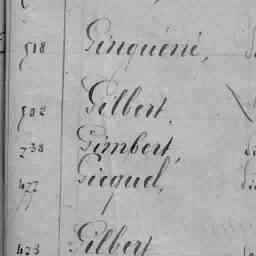 518 Ginguéné,
502 Gilbert,
238 Gimbert,
477 Gicquel,
423 Gilbert